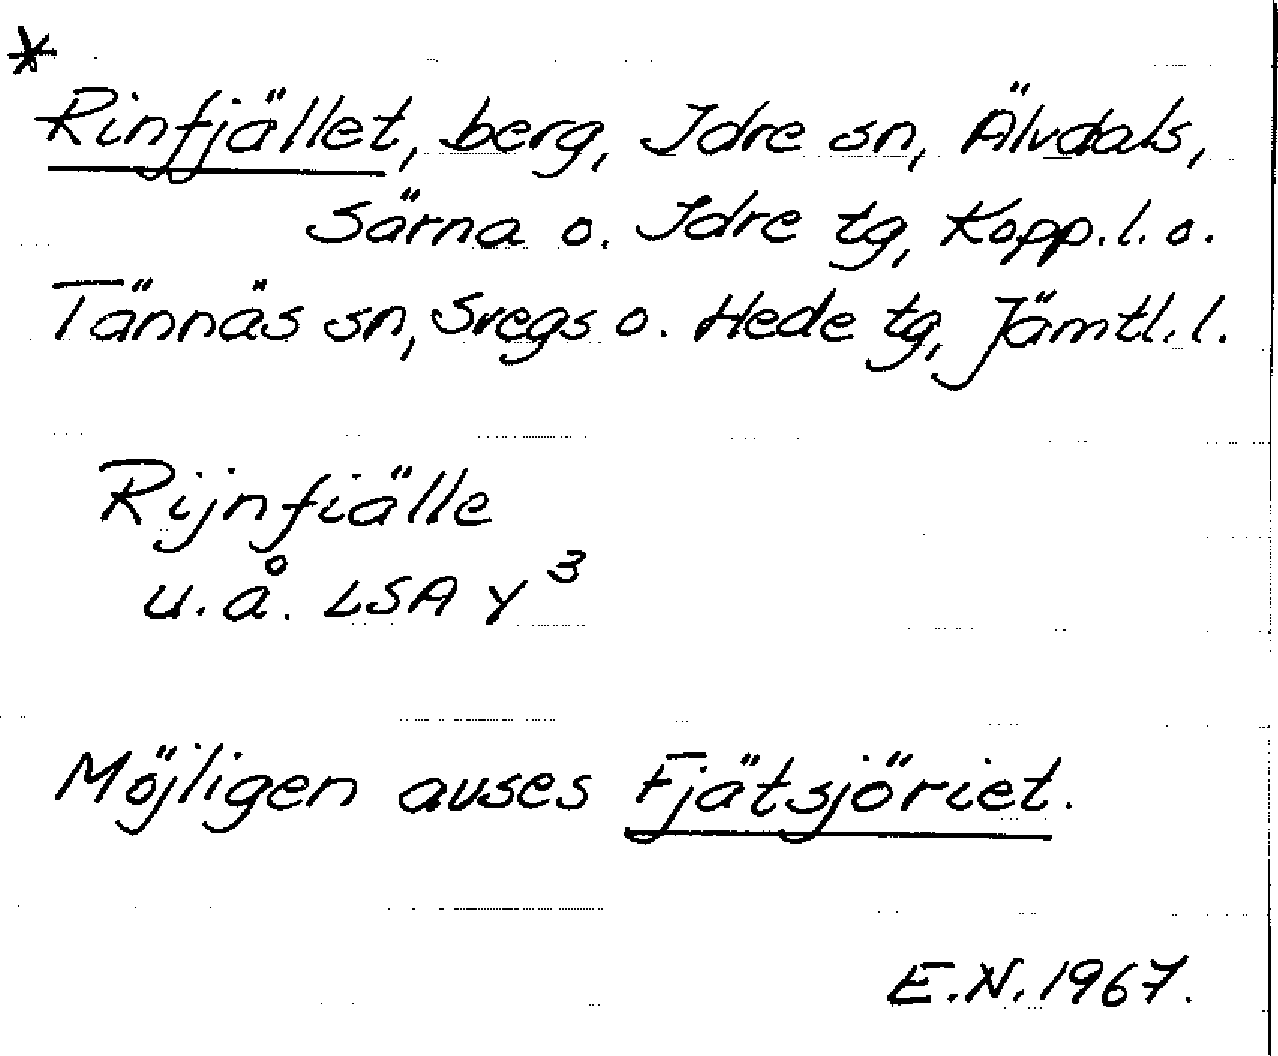 *
Rinfjället, berg, Idre sn, Älvdals,
Särna o. Idre tg, Kopp.l. o.
Tännäs sn, Svegs o. Hede tg, Jämtl.l.
Rijnfiälle
u.å. LSA Y³
Möjligen avses Fjätsjöriet.
E.N. 1967.